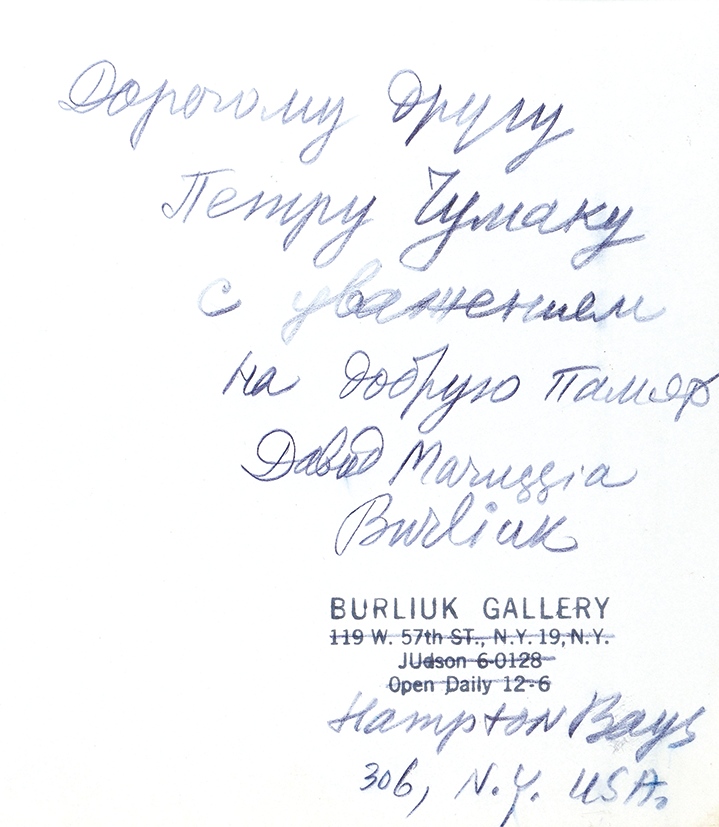 Дорогому другу
Петру Чумаку
с уважением
на добрую память
David Marussia
Burliuk
BURLIUK GALLERY
119 W. 57th ST., N.Y. 19, N.Y.
JUdson 6-0128
Open Daily 12-6
Hampton Bays
306, N.Y. USA.